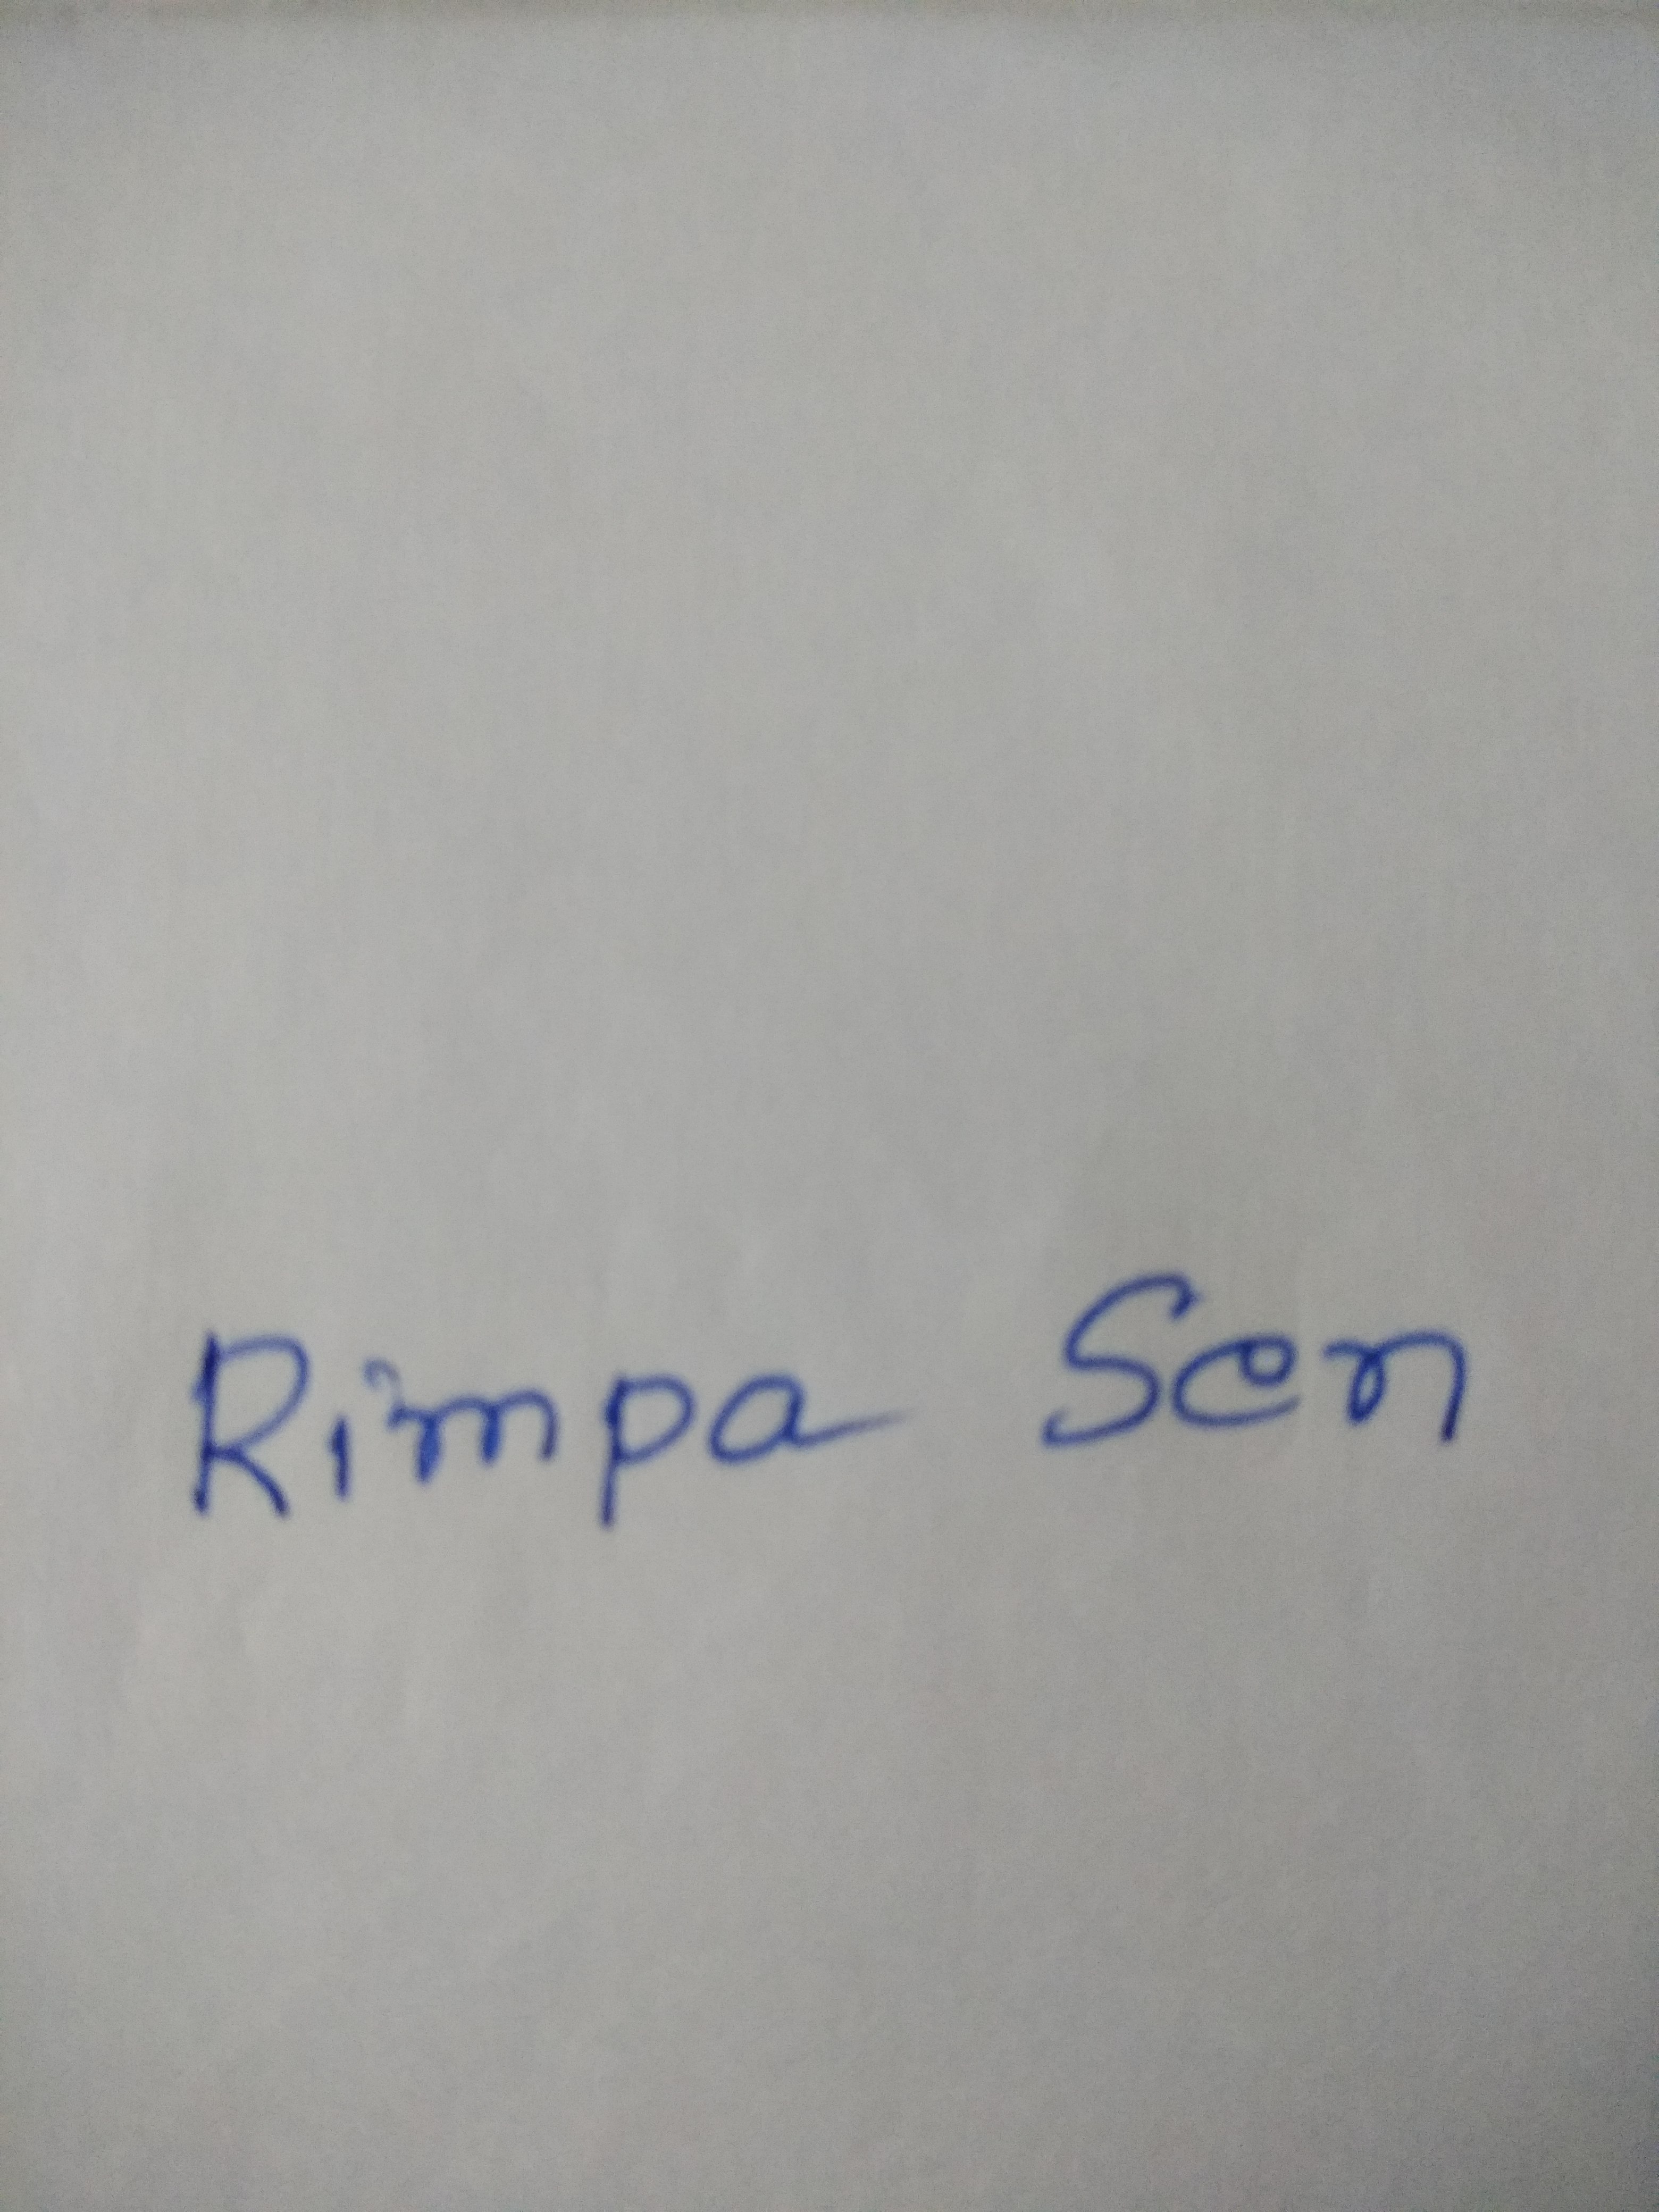 Rimpa Sen